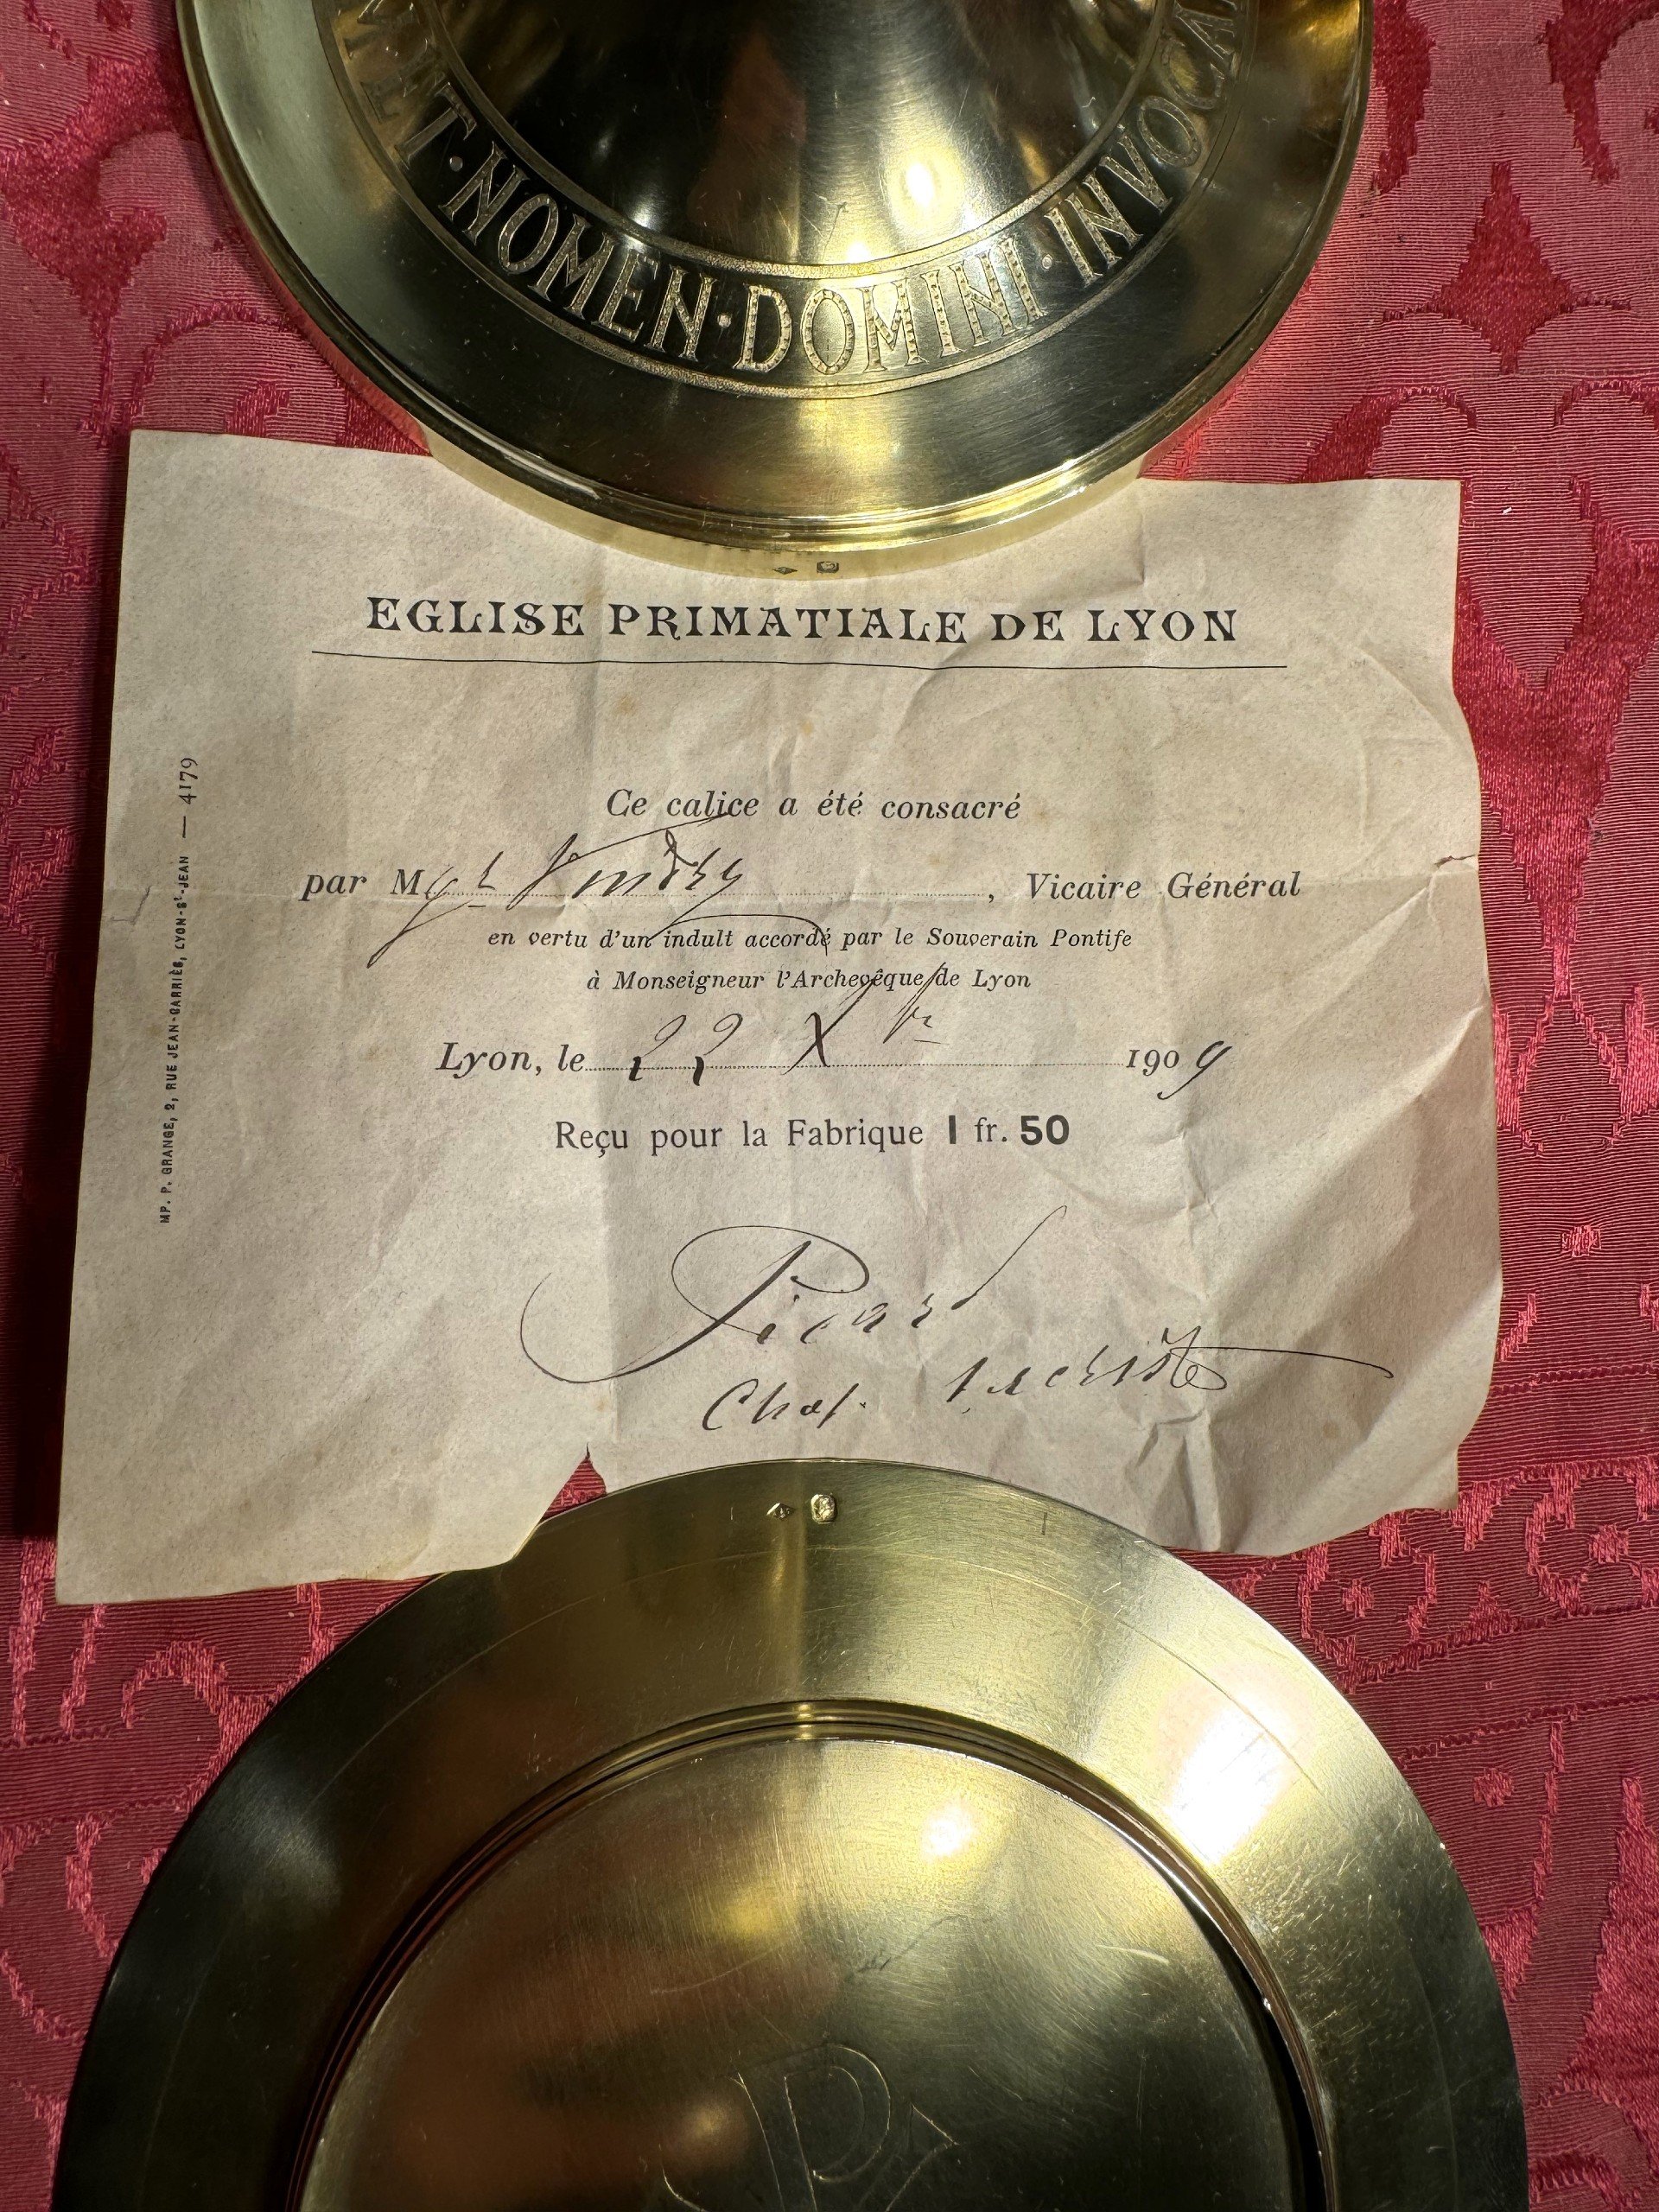 ET · NOMEN · DOMINI · INVOCA
EGLISE PRIMATIALE DE LYON
Ce calice a été consacré
par Mgr Vindry, Vicaire Général
en vertu d'un indult accordé par le Souverain Pontife
à Monseigneur l'Archevêque de Lyon
Lyon, le 22 Xbr 1909
Reçu pour la Fabrique 1 fr. 50
Picard
Chap. sacriste
MP. P. GRANGE, 2, RUE JEAN-CARRIÈS, LYON-ST-JEAN — 4179
P